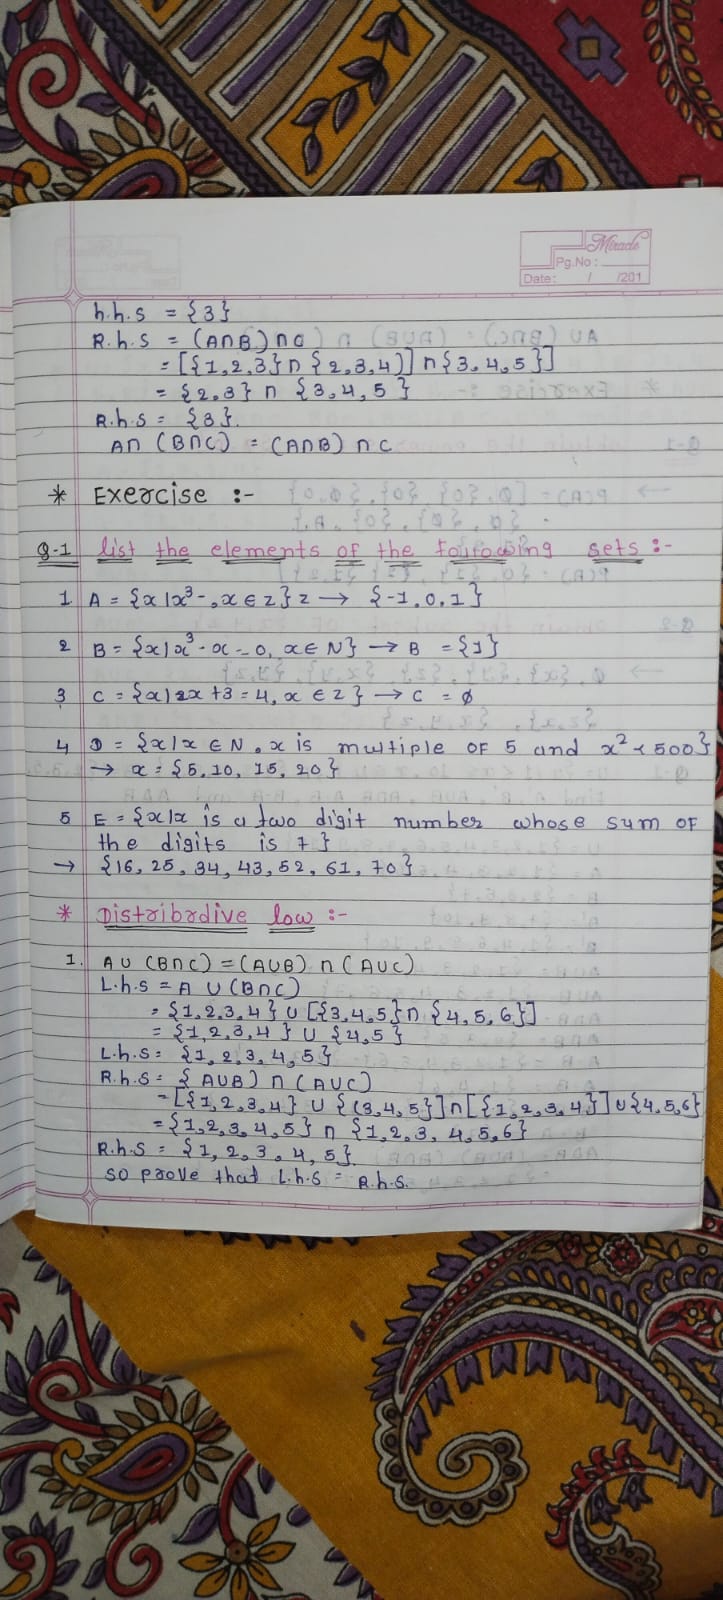 Miracle
Pg.No :
Date: / /201
h.h.s = {3}
R.h.s = (A∩B) ∩ C
= [{1,2,3} ∩ {2,3,4)] ∩ {3,4,5}]
= {2,3} ∩ {3,4,5}
R.h.s = {3}.
A∩ (B∩C) = (A∩B) ∩ C
* Exercise :-
Q-1 list the elements of the following sets :-
1 A = {x|x³-,x∈z} z → {-1,0,1}
2 B = {x|x³-x-0, x∈N} → B = {1}
3 C = {x|2x+3=4, x∈z} → C = ∅
4 D = {x|x∈N, x is multiple of 5 and x²<500}
→ x = {5,10,15,20}
5 E = {x|x is a two digit number whose sum of
the digits is 7}
→ {16, 25, 34, 43, 52, 61, 70}
* Distribrdive low :-
1. A∪(B∩C) = (A∪B) ∩ (A∪C)
L.h.s = A ∪ (B∩C)
= {1,2,3,4} ∪ [{3,4,5} ∩ {4,5,6}]
= {1,2,3,4} ∪ {4,5}
L.h.s = {1,2,3,4,5}
R.h.s = { A∪B) ∩ (A∪C)
= [{1,2,3,4} ∪ {(3,4,5}] ∩ [{1,2,3,4}] ∪ {4,5,6}
= {1,2,3,4,5} ∩ {1,2,3,4,5,6}
R.h.s = {1,2,3,4,5}.
so prove that L.h.s = R.h.s.